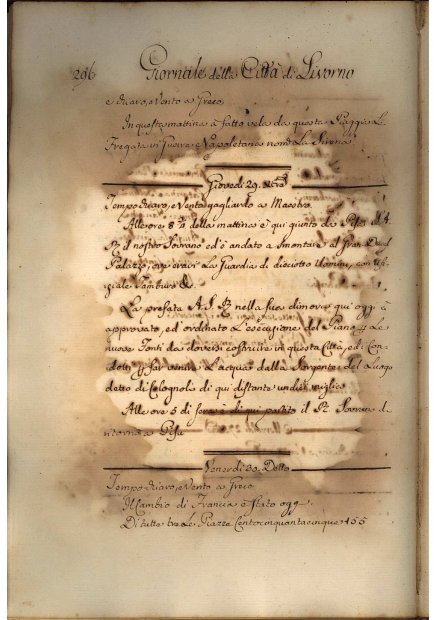 296 Giornale della Città di Livorno
e chiaro, e Vento a Greco
In questa mattina à fatto vela da questa Piaggia La
Fregata in Guerra Napoletana nom.ª La Sirena
Giovedì 29.
Tempo chiaro, e Vento gagliardo a Maestro.
Alle ore 8 ½ della mattina è qui giunto da Pisa
il nostro Sovrano ed è andato a smontare al Gran Ducal
Palazzo, ove eravi La Guardia di diciotto Uomini, con Uffi
ziale Tamburo &.
La prefata A. S. R. nella sua dimora qui oggi à
approvato, ed ordinato L'esecuzione del Piano Le
nuove Fonti da doversi costruire in questa Città, e di Con
dotti far venire L'acqua dalla Sorgente del Luogo
detto di Colognole di qui distante undici miglia
Alle ore 5 di sera è di qui partito il Sovrano di
ritorno a Pisa
Venerdì 30. Detto
Tempo chiaro, e Vento a Greco
Il Cambio di Francia è stato oggi
Di tutte tre Le Piazze Centocinquantacinque 155